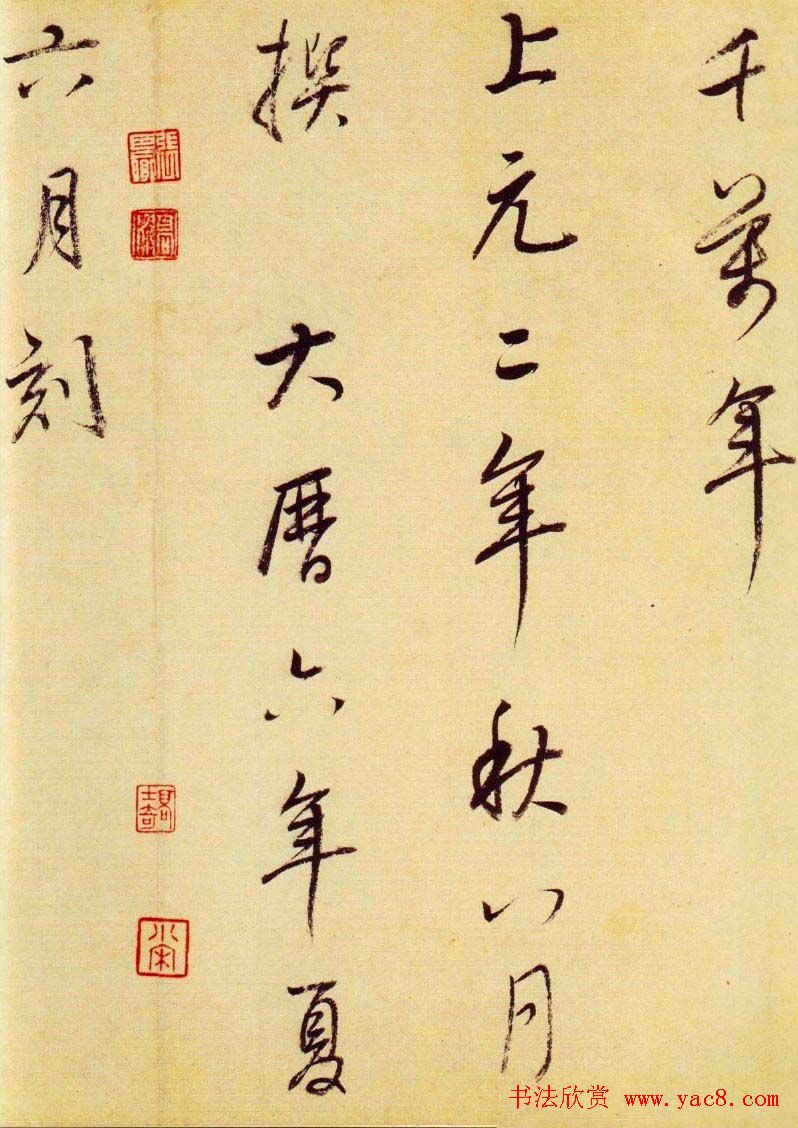 千萬年
上元二年秋八月
撰大曆六年夏
六月刻
书法欣赏 www.yac8.com